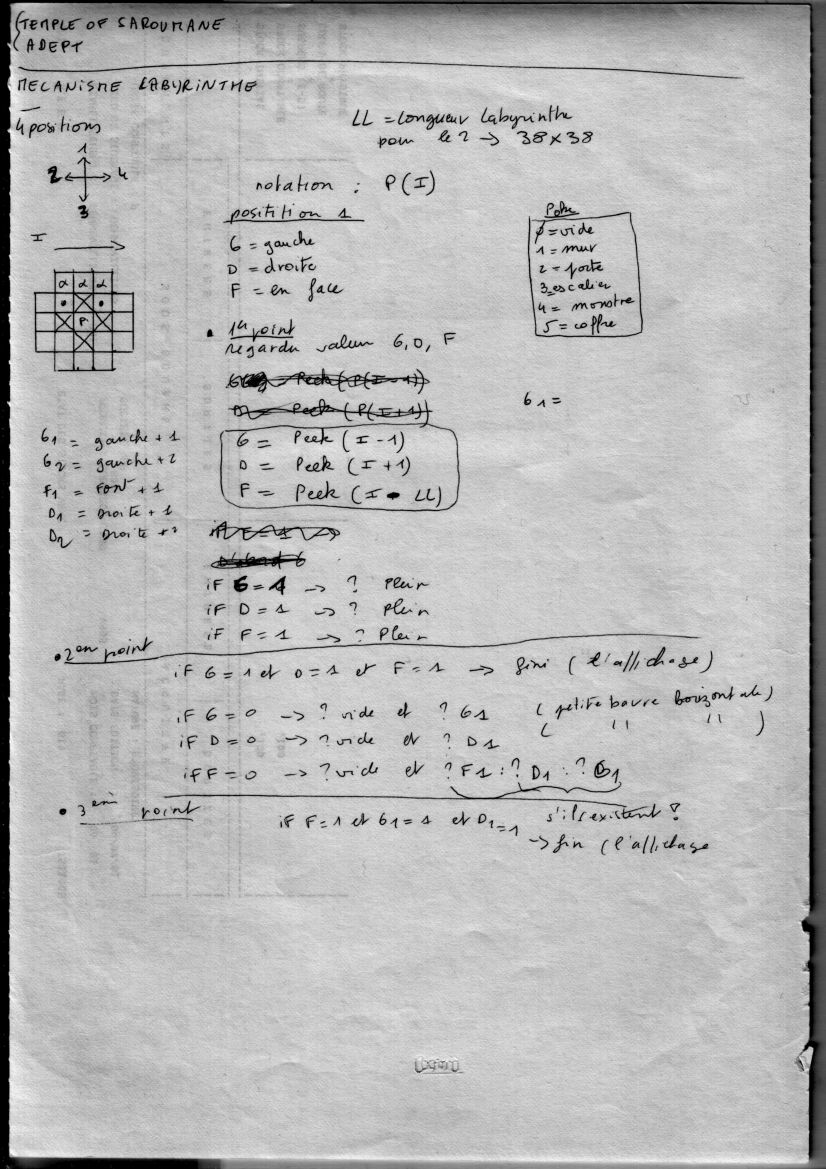 TEMPLE OF SAROUMANE
ADEPT
MECANISME LABYRINTHE
4 positions
LL = longueur labyrinthe
pour le 2 → 38×38
1
2 4
3
notation : P(I)
I →
positition 1
G = gauche
D = droite
F = en face
Poke
0 = vide
1 = mur
2 = porte
3 = escalier
4 = monstre
5 = coffre
α α α
P
• 1er point
regarder valeur G, D, F
Peek (P(I-1))
D = Peek (P(I+1))
G1 =
G = Peek (I-1)
D = Peek (I+1)
F = Peek (I - LL)
G1 = gauche + 1
G2 = gauche + 2
F1 = Font + 1
D1 = Droite + 1
D2 = Droite + 2
if F = 1 →
D'abord G
iF G = 1 → ? Plein
iF D = 1 → ? Plein
iF F = 1 → ? Plein
• 2em point
iF G = 1 et D = 1 et F = 1 → fini (l'affichage)
iF G = 0 → ? vide et ? G1 (petite barre horizontale)
iF D = 0 → ? vide et ? D1 ( " " )
iF F = 0 → ? vide et ? F1 : ? D1 : ? G1
• 3em point
iF F=1 et G1=1 et D1=1 s'ils existent !
→ fin (l'affichage